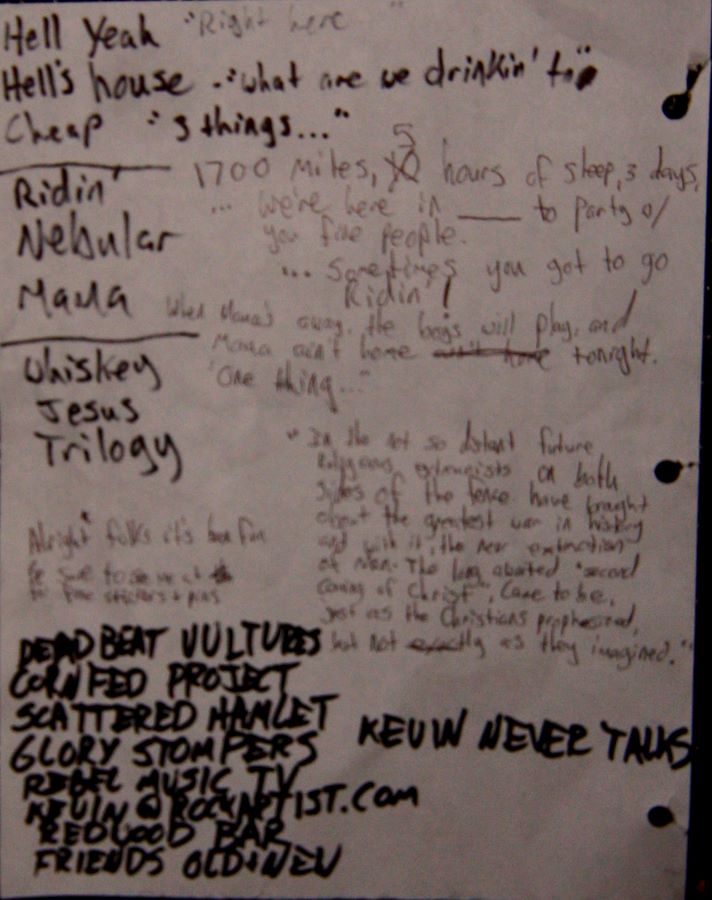 Hell Yeah "Right here "
Hell's house - "what are we drinkin' to"
Cheap "3 things..."
5
Ridin' 1700 miles, hours of sleep, 3 days,
... we're here in ___ to party w/
Nebular you fine people.
... sometimes you got to go
Ridin'!
Mama When Mama's away, the boys will play, and
Mama ain't home tonight.
"One thing..."
Whiskey
Jesus
Trilogy
"In the not so distant future
Religeous extremists on both
sides of the fence have brought
about the greatest war in history
and with it, the near extinction
of man. The long awaited "second
coming of Christ", came to be,
just as the Christians prophesized,
but not exactly as they imagined."
Alright folks it's been fun
Be sure to see me at
for free stickers + pins
DEADBEAT VULTURES
CORNFED PROJECT
SCATTERED HAMLET
GLORY STOMPERS
KEVIN NEVER TALKS
REBEL MUSIC TV
KEVIN@ROCKARTIST.COM
REDWOOD BAR
FRIENDS OLD+NEW